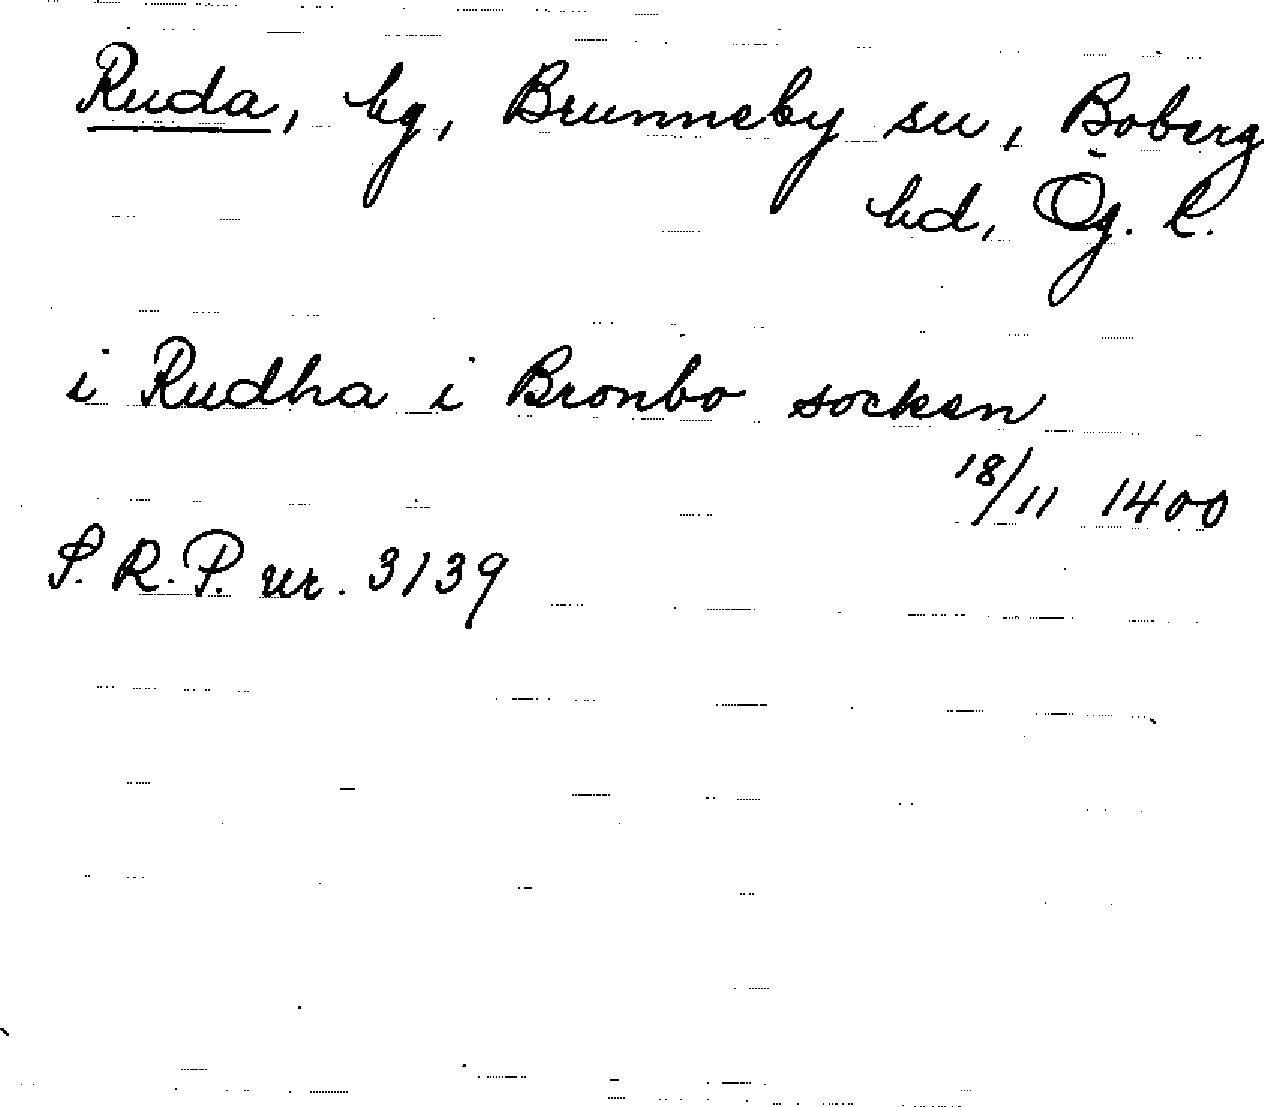 Ruda, hg, Brunneby sn, Boberg
hd, Ög. l.
i Rudha i Bronbo socken
18/11 1400
S. R. P. nr. 3139